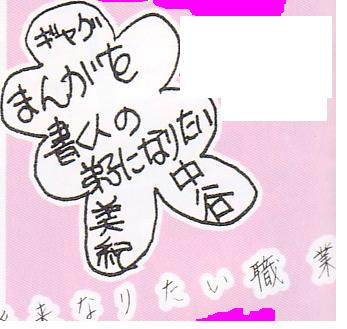 ギャグ
まんがを
書く人の
弟子になりたい
中谷
美紀
来なりたい職業